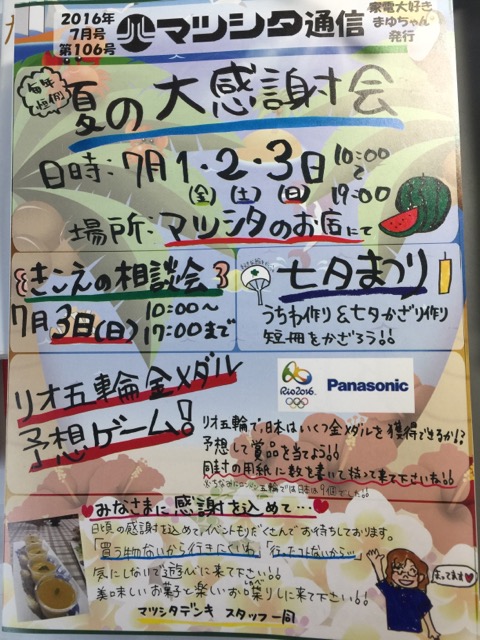 2016年
7月号
第106号
マツシタ通信
家電大好き
まゆちゃん
発行
毎年
恒例
夏の大感謝会
日時:7月1・2・3日 10:00
(金)(土)(日) 19:00
場所:マツシタのお店にて
きこえの相談会
7月3日(日) 10:00~
17:00まで
七夕まつり
うちわ作り&七夕かざり作り
短冊をかざろう!!
リオ五輪金メダル
予想ゲーム!
RIO2016
Panasonic
リオ五輪で、日本はいくつ金メダルを獲得できるか!?
予想して賞品を当てよう!!
同封の用紙に数を書いて持って来て下さいね!!
※ちなみにロンドン五輪では日本は9個でした!!
みなさまに感謝を込めて…
日頃の感謝を込めてイベントもりだくさんでお待ちしております。
「買う物ないから行きにくいわ」「行ったコトないから…」
気にしないで遊びに来て下さい!!
美味しいお菓子と楽しいお喋りしに来て下さい!!
マツシタデンキ スタッフ一同
まってます